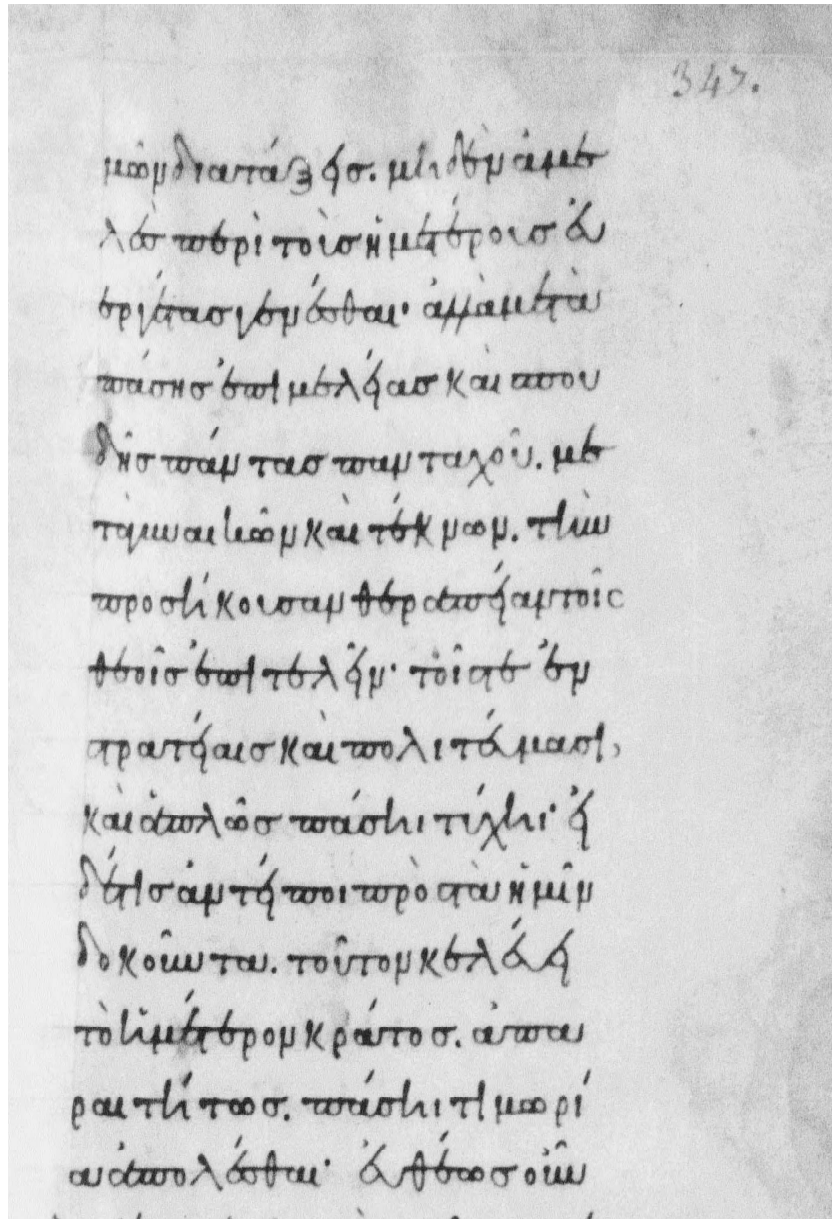 μῶν διατάξεις. μηδὲν ἀμε
λὲς περὶ τοὺς ἡμετέρους εὐ
εργέτας γενέσθαι· ἀλλὰ μετὰ
πάσης ἐπιμελείας καὶ σπου
δῆς πάντας πανταχοῦ. με
τὰ γυναικῶν καὶ τέκνων. τὴν
προσήκουσαν θεραπείαν τοῖς
θεοῖς ἐπιτελεῖν· τοῖς τε ἐν
στρατείαις καὶ πολιτεύμασι,
καὶ ἁπλῶς πάσηι τύχηι· εἰ
δέ τις ἀντείποι πρὸς τὰ ἡμῖν
δοκοῦντα. τοῦτον κελεύει
τὸ ἡμέτερον κράτος. ἀπα
ραιτήτως. πάσηι τιμωρί
α ἀπολέσθαι· εὐθέως οὖν